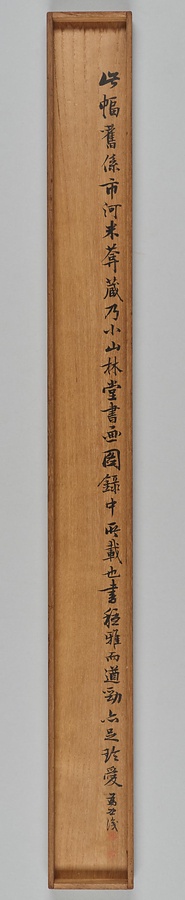 此幅舊係市河米葊藏乃小山林堂書画圖錄中所載也書極雅而遒勁亦足珍愛